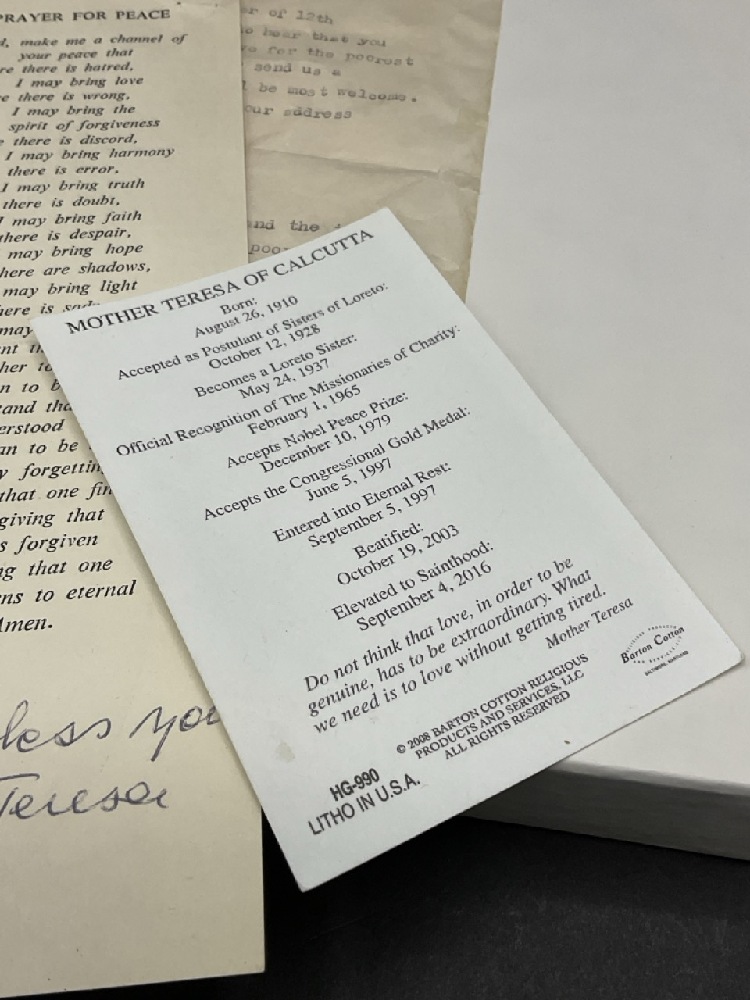 PRAYER FOR PEACE
make me a channel of
your peace that
there is hatred,
I may bring love
there is wrong,
I may bring the
spirit of forgiveness
there is discord,
I may bring harmony
there is error,
I may bring truth
there is doubt,
may bring faith
there is despair,
may bring hope
there are shadows,
may bring light
is
may
to
to b
and
to be
forgetting
that one
giving that
forgiven
that one
to eternal
Amen.
less you
Teresa
of 12th
hear that you
for the poorest
send us a
be most welcome.
address
and the
MOTHER TERESA OF CALCUTTA
Born:
August 26, 1910
Accepted as Postulant of Sisters of Loreto:
October 12, 1928
Becomes a Loreto Sister:
May 24, 1937
Official Recognition of The Missionaries of Charity:
February 1, 1965
Accepts Nobel Peace Prize:
December 10, 1979
Accepts the Congressional Gold Medal:
June 5, 1997
Entered into Eternal Rest:
September 5, 1997
Beatified:
October 19, 2003
Elevated to Sainthood:
September 4, 2016
Do not think that love, in order to be
genuine, has to be extraordinary. What
we need is to love without getting tired.
Mother Teresa
Barton Cotton
© 2008 BARTON COTTON RELIGIOUS
PRODUCTS AND SERVICES, LLC
ALL RIGHTS RESERVED
HG-990
LITHO IN U.S.A.